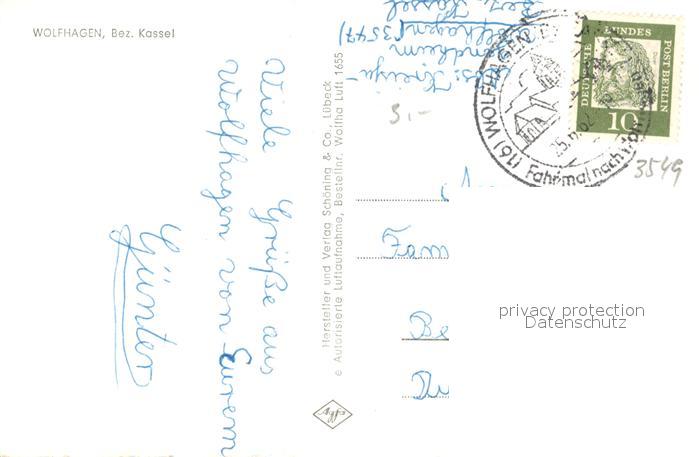 WOLFHAGEN, Bez. Kassel
Viele Grüße aus
Wolfhagen von Eurem
Günter
Hersteller und Verlag Schöning & Co., Lübeck
Autorisierte Luftaufnahme, Bestellnr. Wolfha Luft 1655
Agfa
Bez. Kassel
(3547)
3,-
DEUTSCHE BUNDESPOST BERLIN
10
(16) WOLFHAGEN
Fahr mal nach
3549
Fam
Be
privacy protection
Datenschutz